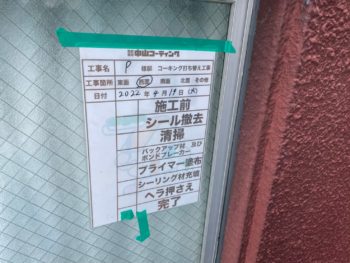 中山コーティング
工事名 P 様邸 コーキング打ち替え工事
工事箇所 東面 西面 南面 北面・その他
日付 2022年4月19日(火)
施工前
シール撤去
清掃
バックアップ材 及び
ボンドブレーカー
プライマー塗布
シーリング材充填
ヘラ押さえ
完了